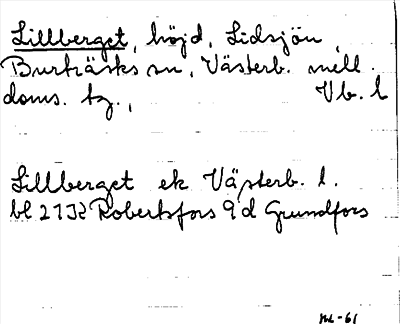 Lillberget, höjd, Lidsjön,
Burträsks sn, Västerb. mell.
doms. tg., Vb. l
Lillberget ek Västerb. l.
bl 21J2 Robertsfors 9d Grundfors
ML-61